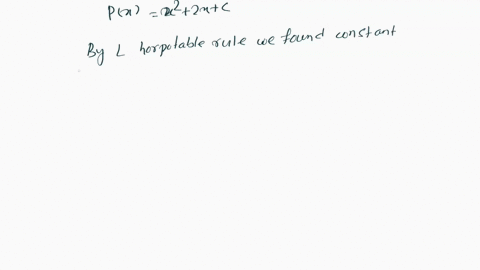 P(x) = x²+2x+c
By L horpotable rule we found constant